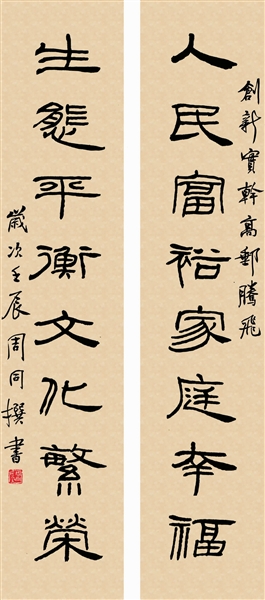 創新實幹高郵騰飛
人民富裕家庭幸福
生態平衡文化繁榮
歲次壬辰周同撰書